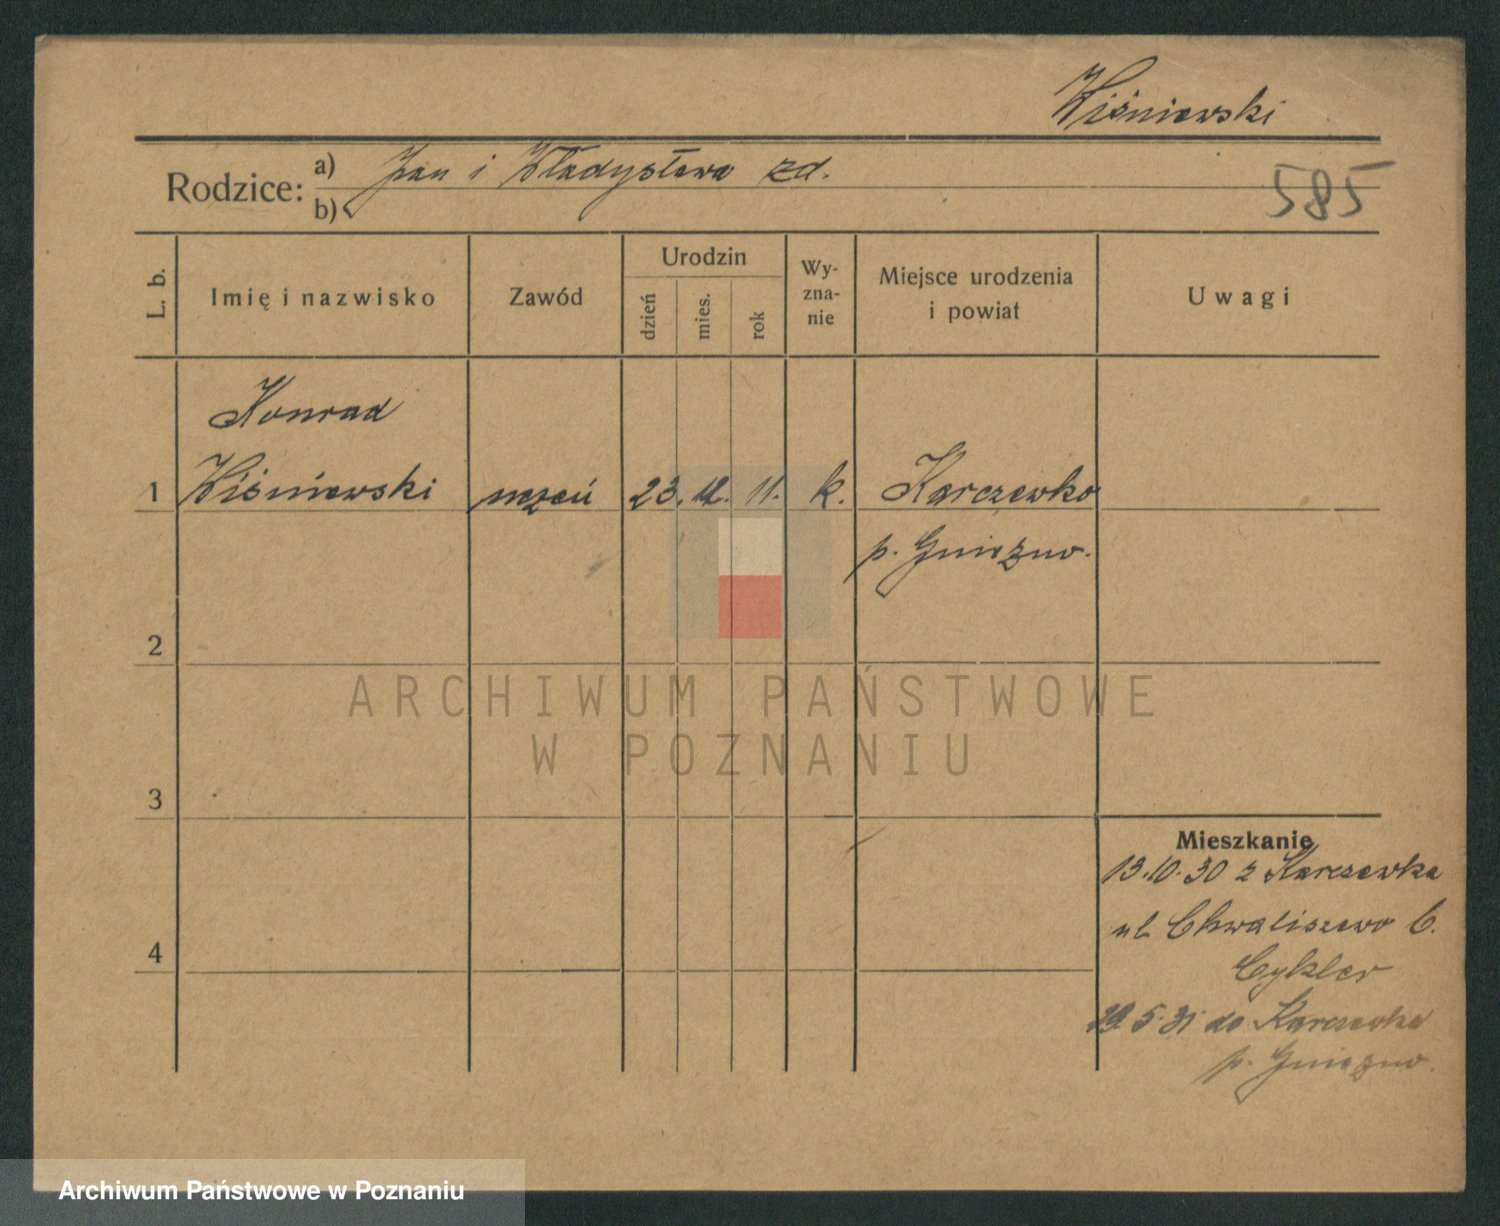 Wiśniewski
Rodzice: a) Jan i Władysława zd.
b)
585
L. b.
Imię i nazwisko
Zawód
Urodzin
dzień
mies.
rok
Wy-
zna-
nie
Miejsce urodzenia
i powiat
Uwagi
Konrad
1 Wiśniewski uczeń 23. 12. 11. k. Karczewko
p. Gniezno.
2
3
4
Mieszkanie
13.10.30 z Karczewka
ul. Chwaliszewo 6.
Cykler
29.5.31 do Karczewka
p. Gniezno.
ARCHIWUM PAŃSTWOWE
W POZNANIU
Archiwum Państwowe w Poznaniu